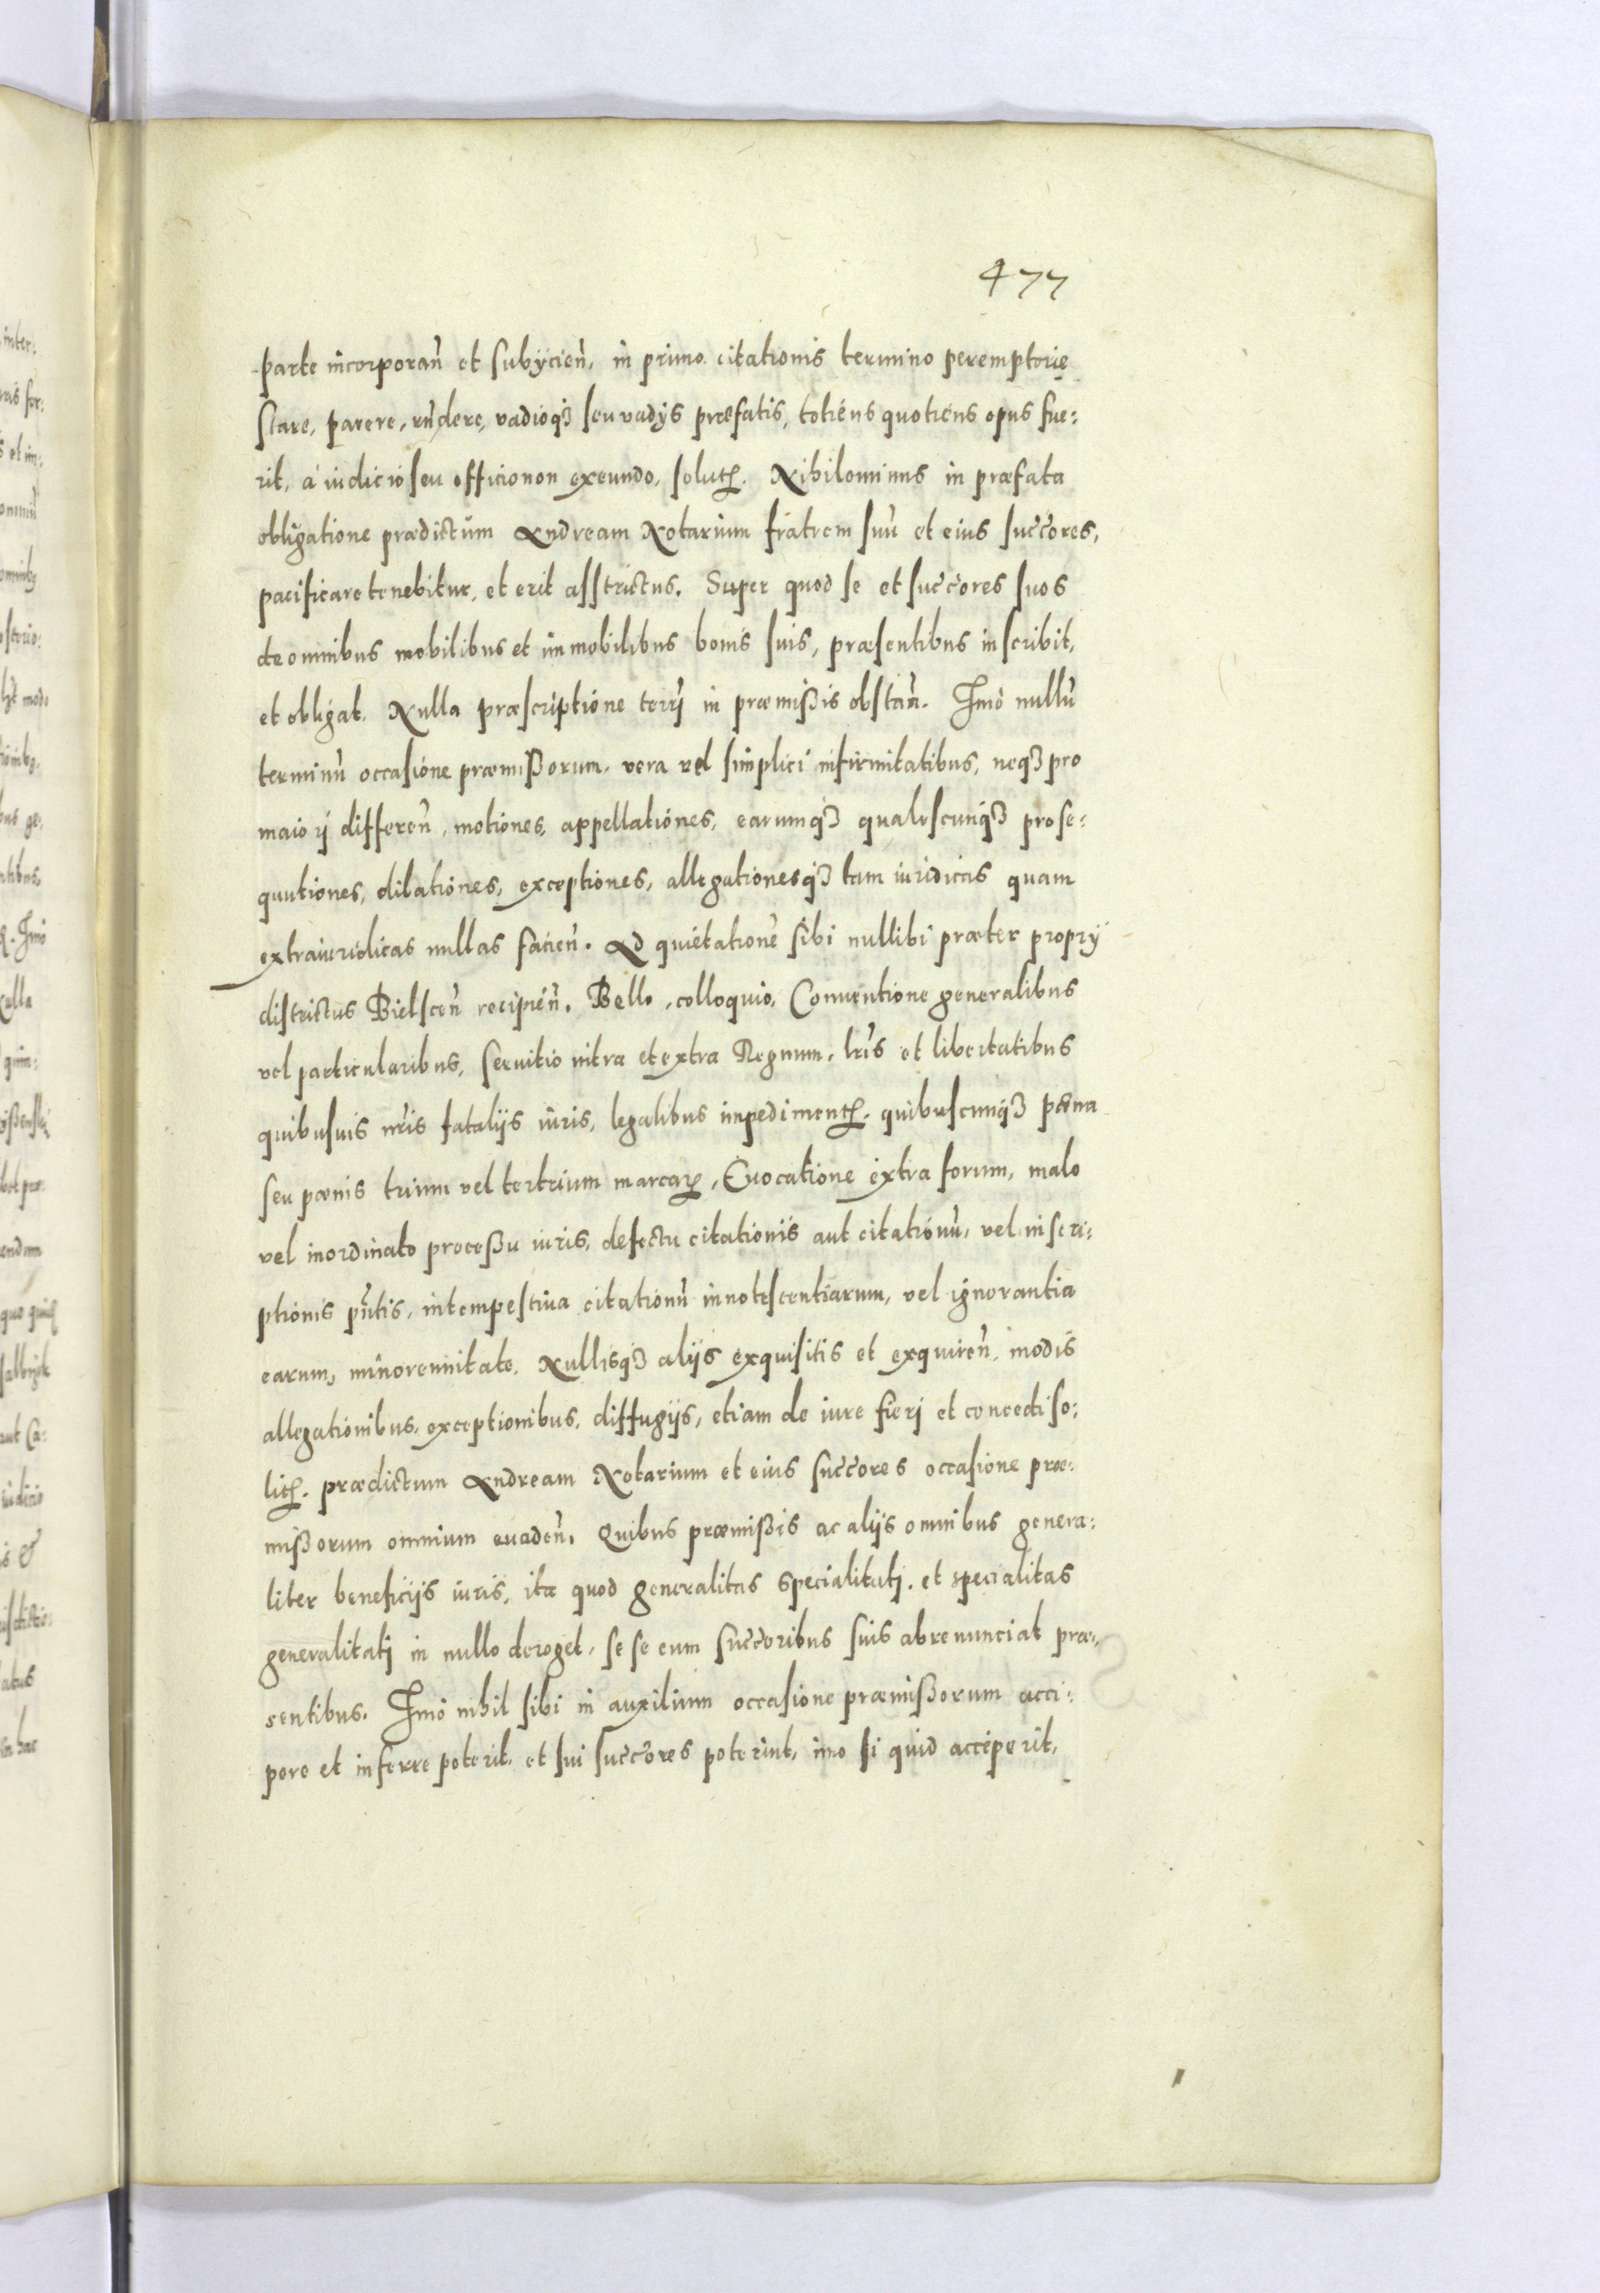 477
parte incorporan̄ et subÿcien̄, in primo citationis termino peremptorie
stare, parere, rn̄dere, vadioqꝫ seu vadÿs præfatis, totiens quotiens opus fue:
rit, a iudicio seu officio non exeundo, solutꝭ. Nihilominus in præfata
obligatione prædictum Andream Notarium fratrem suū et eius succ̄ores,
pacificare tenebitur, et erit asstrictus. Super quod se et succ̄ores suos
de omnibus mobilibus et immobilibus bonis suis, præsentibus inscribit,
et obligat. Nulla præscriptione terrj in præmißis obstan̄. Imo nullū
terminū occasione præmißorum, vera vel simplici infirmitatibus, neqꝫ pro
maiorj differen̄, motiones, appellationes, earumqꝫ qualescunqꝫ prose:
quutiones, dilationes, exceptiones, allegationesqꝫ tam iuridicas quam
extraiuridicas nullas facien̄. Ad quietatione̅ sibi nullibi præter proprÿ
districtus Bielscen̄ recipien̄. Bello, colloquio, Conuentione generalibus
vel particularibus, seruitio intra et extra Regnum, lr̄is et libertatibus
quibusuis nr̄is fatalÿs iuris, legalibus impedimentꝭ. quibuscunqꝫ pæna
seu pænis trium vel tertrium marcarꝝ, Euocatione extra forum, malo
vel inordinato proceßu iuris, defectu citationis aut citationū, vel inscri:
ptionis pn̄tis, intempestiua citationū innotescentiarum, vel ignorantia
earum, minorennitate. Nullisqꝫ alijs exquisitis et exquiren̄, modis
allegationibus, exceptionibus, diffugijs, etiam de iure fierj et concedi so:
litꝭ. prædictum Andream Notarium et eius succ̄ores occasione præ:
mißorum omnium euaden̄. Quibus præmißis ac alijs omnibus genera:
liter beneficijs iuris, ita quod generalitas specialitatj, et specialitas
generalitatj in nullo deroget, se se cum succ̄oribus suis abrenunciat præ:
sentibus. Imo nihil sibi in auxilium occasione præmißorum acci:
pere et inferre poterit, et sui succ̄ores poterint, imo si quid acceperit,